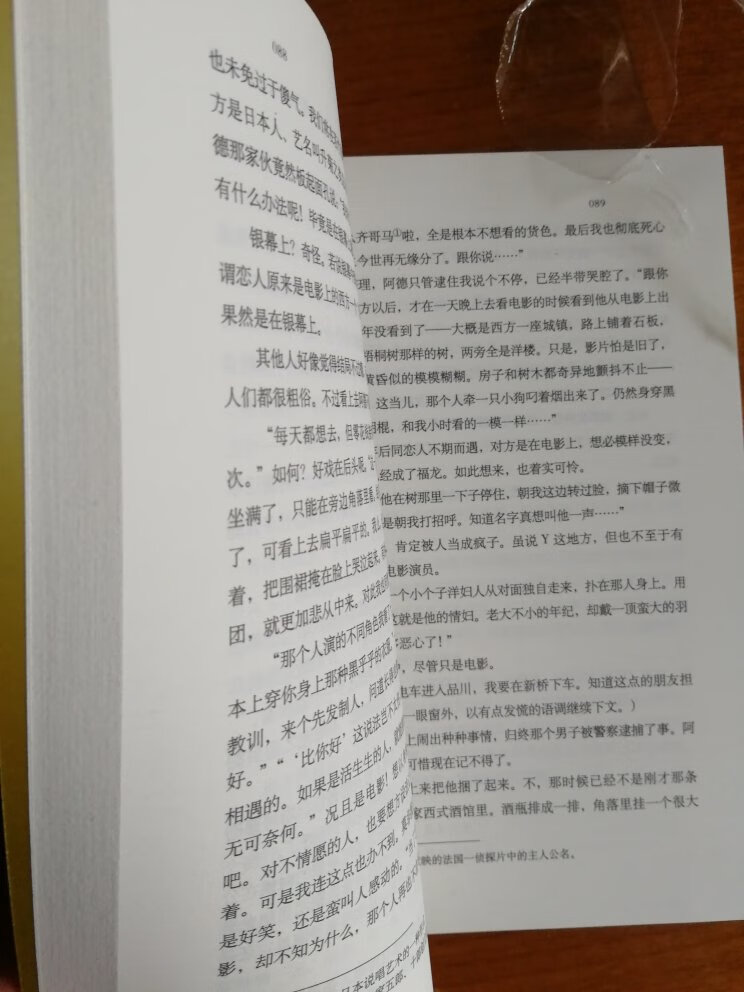 088
也未免过于傻气。我们
方是日本人、艺名叫升菊
德那家伙竟然板起面孔说。
有什么办法呢！毕竟是在银幕
银幕上？奇怪。若说银幕
谓恋人原来是电影上的西方
果然是在银幕上。
其他人好像觉得结局不过
人们都很粗俗。不过看上去阿
“每天都想去，但零花钱
次。”如何？好戏在后头呢。
坐满了，只能在旁边角落里看，
了，可看上去扁平扁平的。我
着，把围裙掩在脸上哭泣起来。
团，就更加悲从中来。对此我也
“那个人演的不同角色我看
本上穿你身上那种黑乎乎的衣服。
教训，来个先发制人，问道长得
好。”“‘比你好’这说法岂不
相遇的。如果是活生生的人，就
无可奈何。”况且是电影！想
吧。对不情愿的人，也要想方设
着。可是我连这点也办不到。
是好笑，还是蛮叫人感动的。
影，却不知为什么，那个人再也不
日本说唱艺术的一种
089
齐哥马①啦，全是根本不想看的货色。最后我也彻底死心
今世再无缘分了。跟你说……”
理，阿德只管逮住我说个不停，已经半带哭腔了。“跟你
方以后，才在一天晚上去看电影的时候看到他从电影上出
年没看到了——大概是西方一座城镇，路上铺着石板，
梧桐树那样的树，两旁全是洋楼。只是，影片怕是旧了，
黄昏似的模模糊糊。房子和树木都奇异地颤抖不止——
这当儿，那个人牵一只小狗叼着烟出来了。仍然身穿黑
棍，和我小时看的一模一样……”
后同恋人不期而遇，对方是在电影上，想必模样没变，
经成了福龙。如此想来，也着实可怜。
他在树那里一下子停住，朝我这边转过脸，摘下帽子微
是朝我打招呼。知道名字真想叫他一声……”
肯定被人当成疯子。虽说 Y 这地方，但也不至于有
电影演员。
一个小个子洋妇人从对面独自走来，扑在那人身上。用
这就是他的情妇。老大不小的年纪，却戴一顶蛮大的羽
恶心了！”
，尽管只是电影。
电车进入品川，我要在新桥下车。知道这点的朋友担
一眼窗外，以有点发慌的语调继续下文。）
上闹出种种事情，归终那个男子被警察逮捕了事。阿
可惜现在记不得了。
上来把他捆了起来。不，那时候已经不是刚才那条
家西式酒馆里。酒瓶排成一排，角落里挂一个很大
映的法国一侦探片中的主人公名。